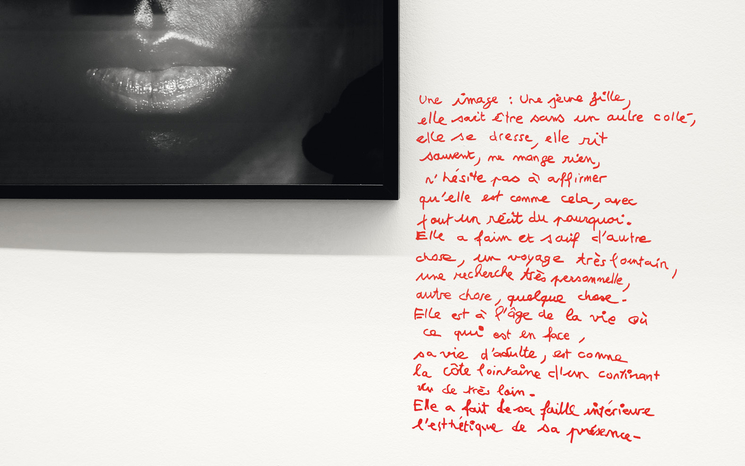 Une image : Une jeune fille,
elle sait être sans un autre collé,
elle se dresse, elle rit
souvent, ne mange rien,
n'hésite pas à affirmer
qu'elle est comme cela, avec
tout un récit du pourquoi.
Elle a faim et soif d'autre
chose, un voyage très lointain,
une recherche très personnelle,
autre chose, quelque chose.
Elle est à l'âge de la vie où
ce qui est en face,
sa vie d'adulte, est comme
la côte lointaine d'un continent
vu de très loin.
Elle a fait de sa faille intérieure
l'esthétique de sa présence.